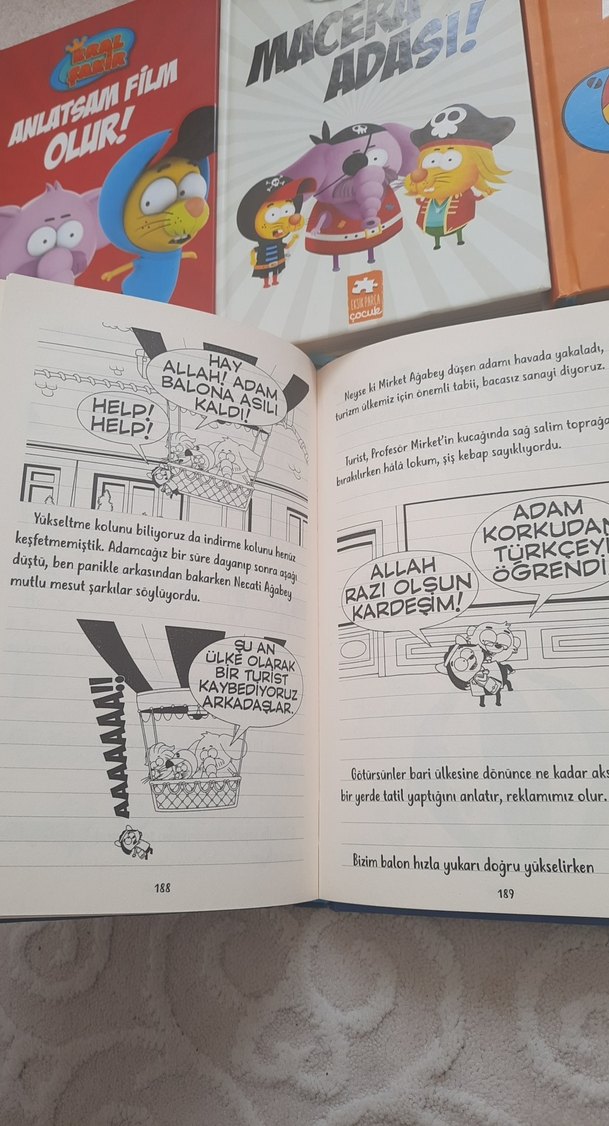 KRAL
ŞAKİR
ANLATSAM FİLM
OLUR!
MACERA
ADASI!
EKSİK PARÇA
çocuk
HAY
ALLAH! ADAM
BALONA ASILI
KALDI!
HELP!
HELP!
Yükseltme kolunu biliyoruz da indirme kolunu henüz
keşfetmemiştik. Adamcağız bir süre dayanıp sonra aşağı
düştü, ben panikle arkasından bakarken Necati Ağabey
mutlu mesut şarkılar söylüyordu.
ŞU AN
ÜLKE OLARAK
BİR TURİST
KAYBEDİYORUZ
ARKADAŞLAR.
AAAAAAA!!
188
Neyse ki Mirket Ağabey düşen adamı havada yakaladı,
turizm ülkemiz için önemli tabii, bacasız sanayi diyoruz.
Turist, Profesör Mirket'in kucağında sağ salim toprağa
bırakılırken hâlâ lokum, şiş kebap sayıklıyordu.
ADAM
KORKUDAN
TÜRKÇEYİ
ÖĞRENDİ
ALLAH
RAZI OLSUN
KARDEŞİM!
Götürsünler bari ülkesine dönünce ne kadar aks
bir yerde tatil yaptığını anlatır, reklamımız olur.
Bizim balon hızla yukarı doğru yükselirken
189